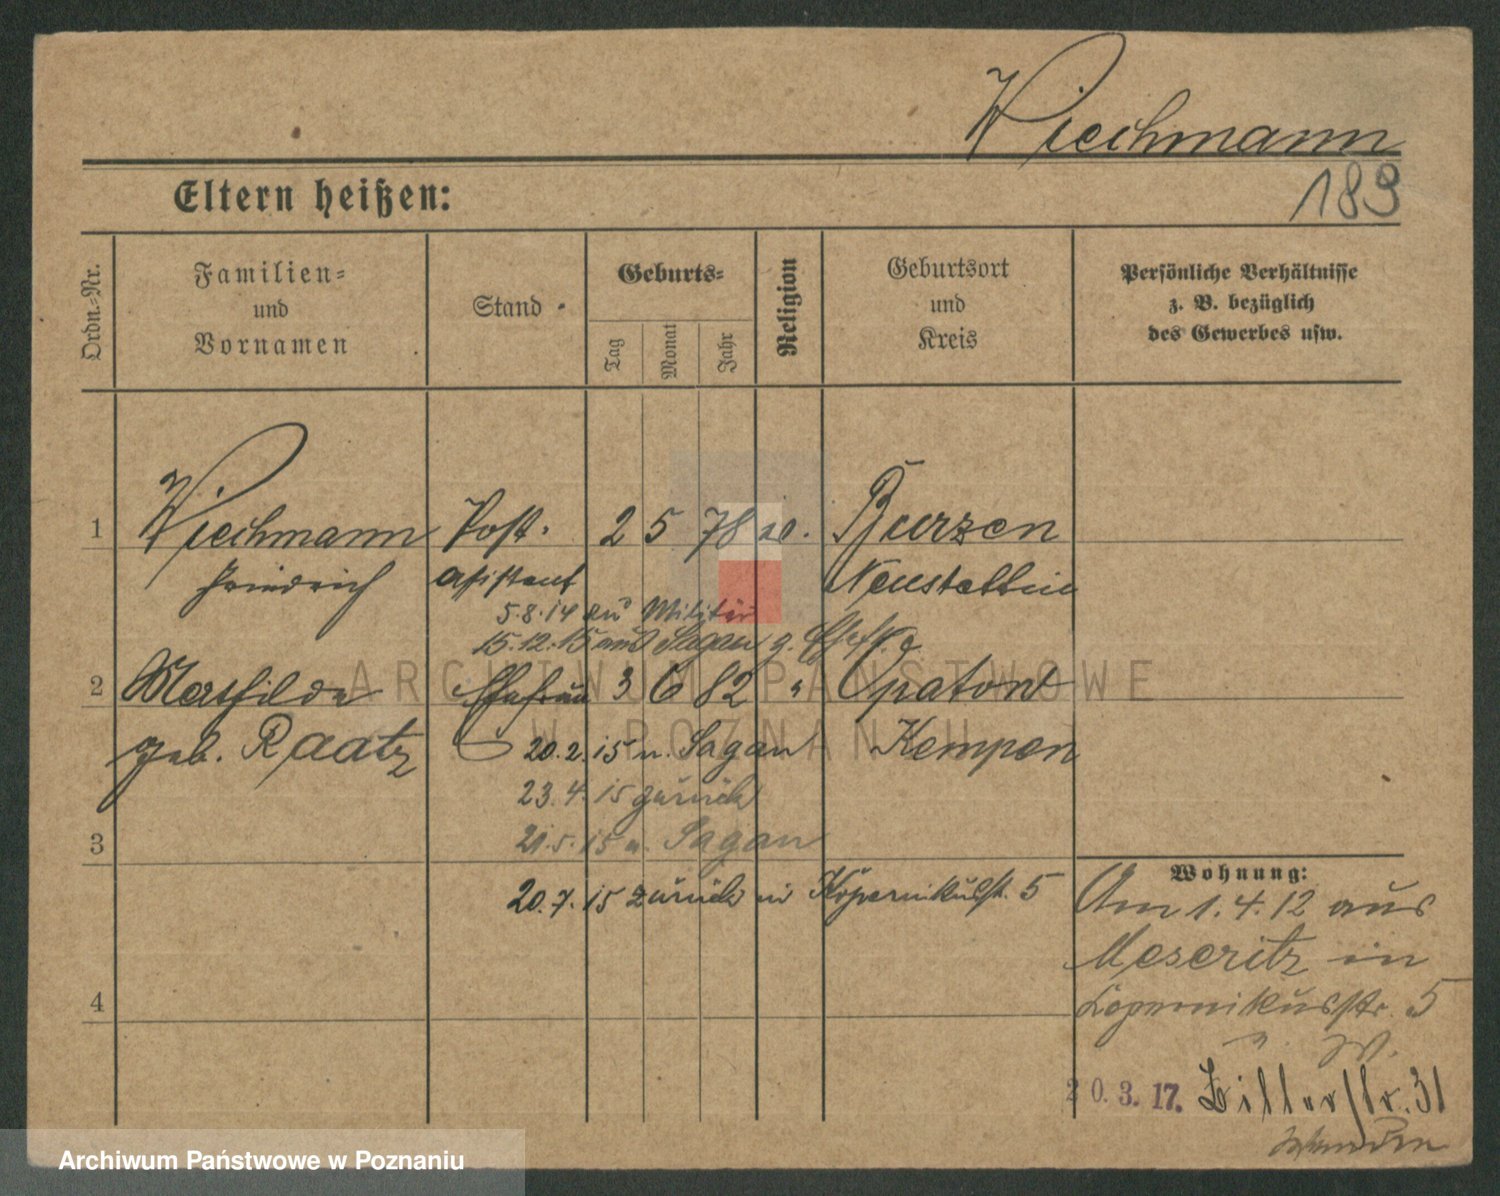 Wiechmann
Eltern heißen:
189
Ordn.-Nr.
Familien-
und
Vornamen
Stand
Geburts-
Tag
Monat
Jahr
Religion
Geburtsort
und
Kreis
Persönliche Verhältnisse
z. B. bezüglich
des Gewerbes usw.
1 Wiechmann Post- 2 5 78 Burzen
Friedrich assistent Neustettin
5.8.14 zu Militär
15.12.15 aus Sagan z.
2 Mathilde Ehefrau 3 6 82 " Opatow
geb. Raatz 20.2.15 n. Sagan Kempen
23.4.15 zurück
3 21.5.15 n. Sagan
20.7.15 zurück in Kopernikusstr. 5
Wohnung:
Am 1.4.12 aus
Meseritz in
4 Kopernikusstr. 5
20.3.17. Bitterstr. 31
ARCHIWUM PAŃSTWOWE
W POZNANIU
Archiwum Państwowe w Poznaniu